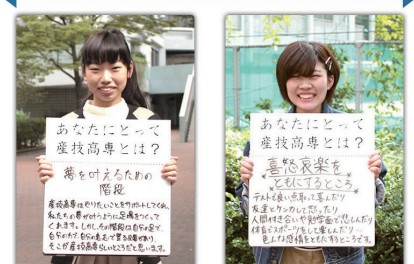 あなたにとって
産技高専とは？
夢を叶えるための
階段
産技高専はやりたいことをサポートしてくれ、
私たちの夢が叶うように足場をつくって
くれます。しかし、その階段は自分の足で、
自分の力で、自分の意志で登る必要があり、
そこが産技高専らしいところだと思います。
あなたにとって
産技高専とは？
喜怒哀楽を
ともにするところ
テストで良い点取って喜んだり
友達とケンカして怒ったり
人間付き合いや勉学面で悲しんだり
体育でスポーツをして楽しんだり…
色んな感情をともにするところです。